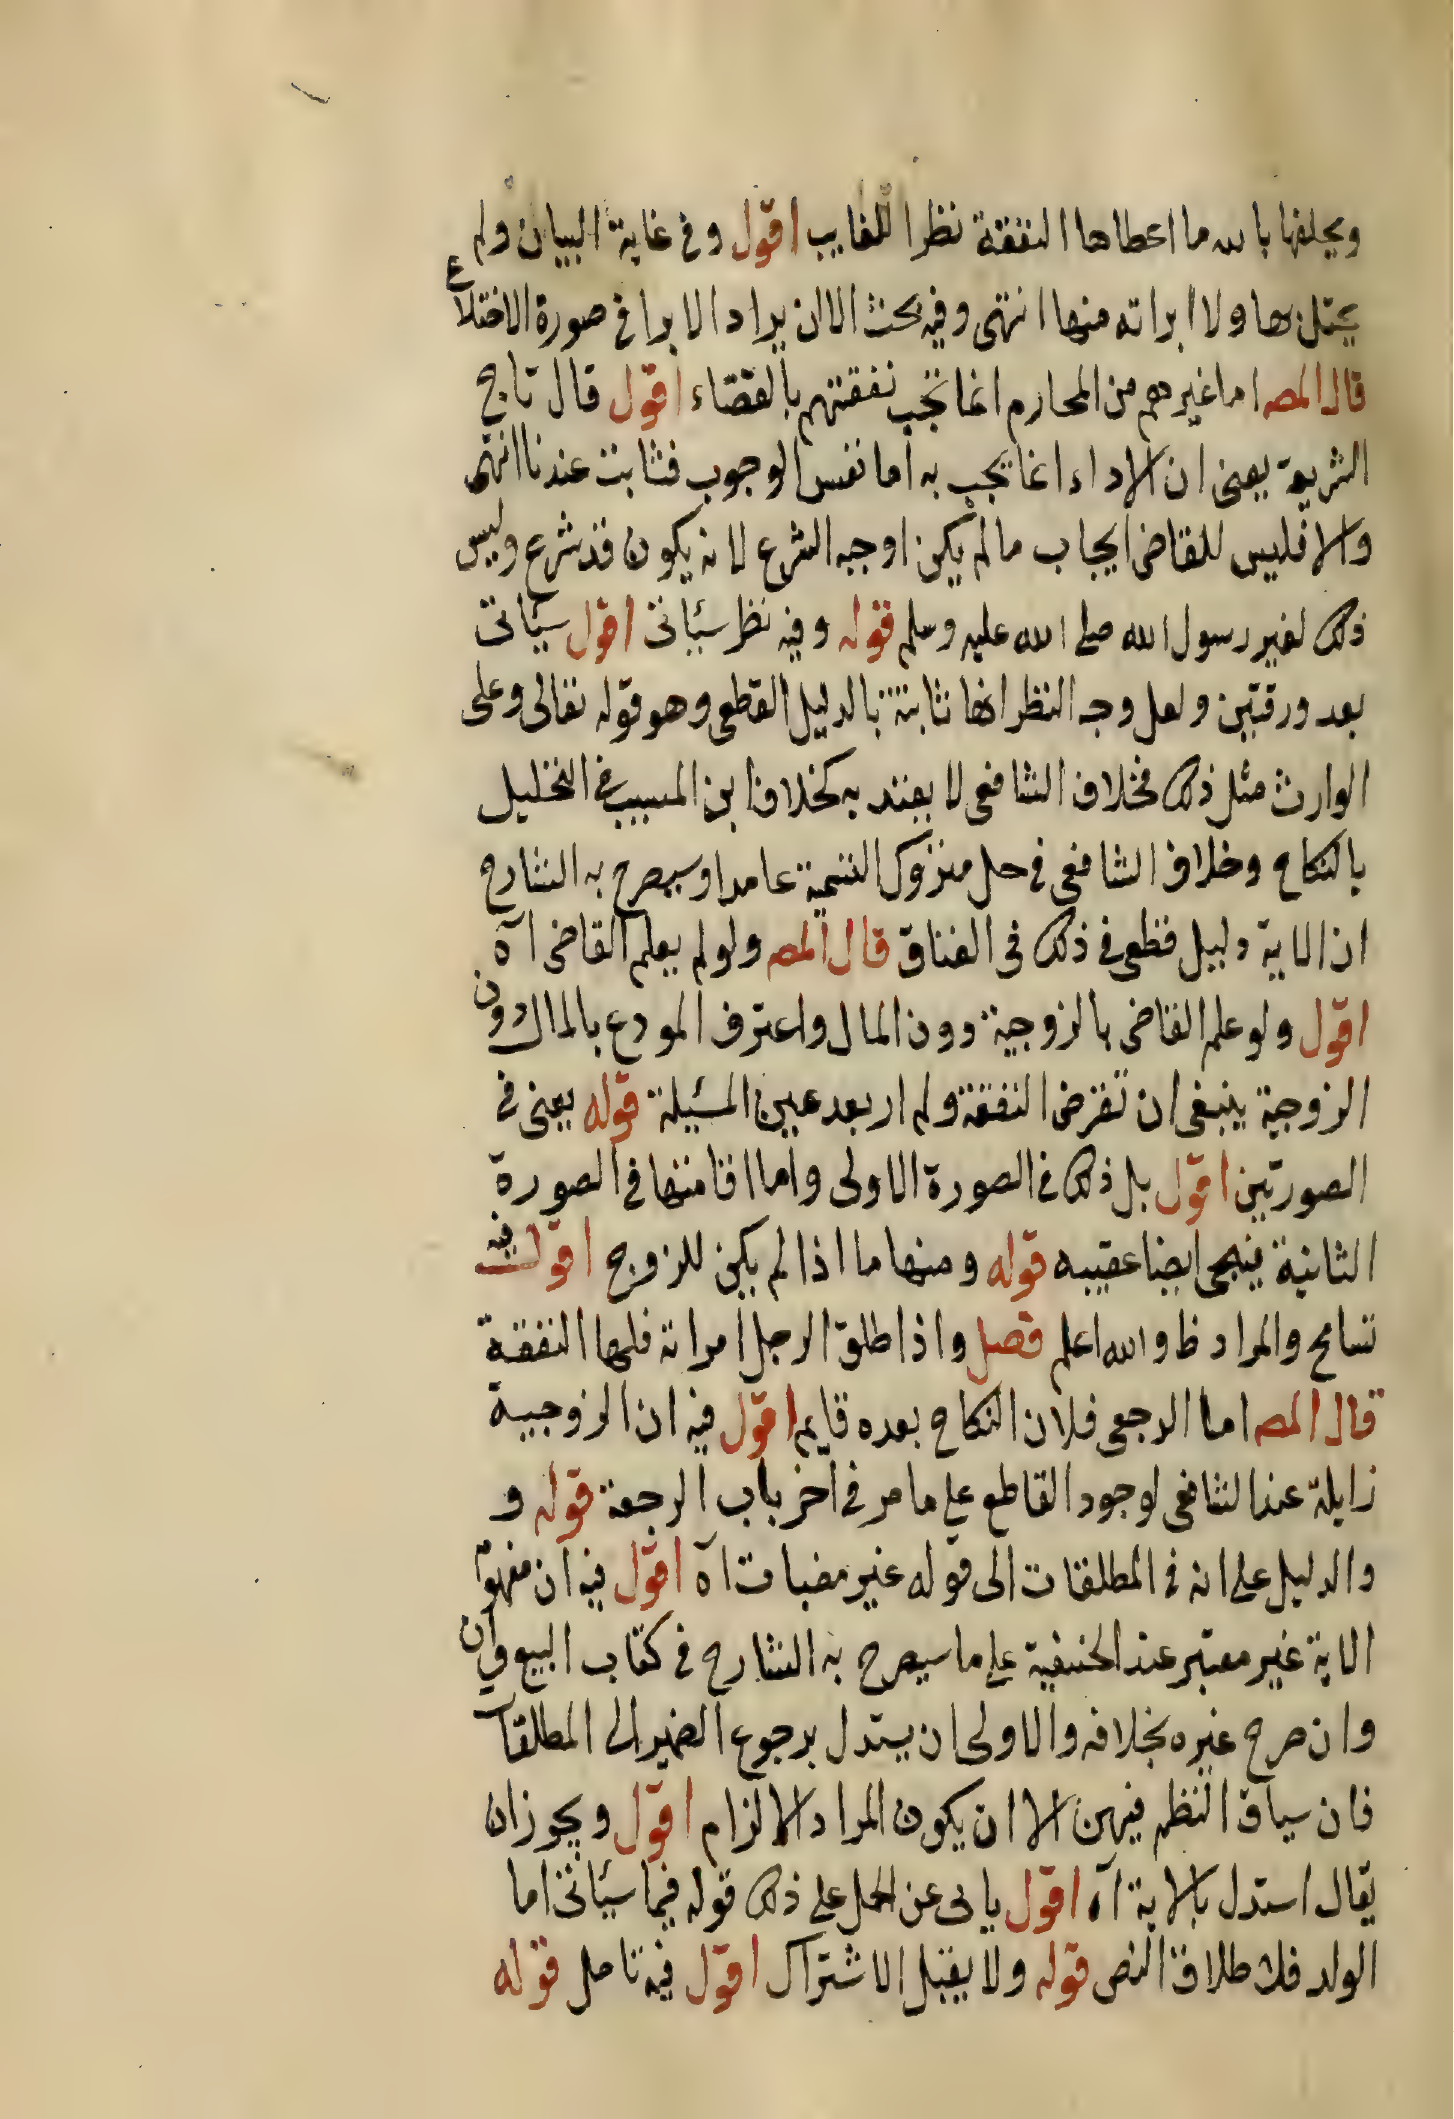 ويحلفها بالله ما اعطاها النفقة نظرا للغايب اقول وفي غاية البيان ولم
يختلن بها ولا ابراته منها انتهى وفيه بحث الا ان يراد الابرا في صورة الاختلاع
قال المصـ اما غيرهم من المحارم انما تجب نفقتهم بالقضاء اقول قال تاج
الشريعة يعني ان الاداء انما تجب به اما نفس الوجوب فثابت عندنا انتهى
والا فليس للقاضي ايجاب ما لم يكن اوجبه الشرع لانه يكون قد شرع وليس
ذلك لغير رسول الله صلى الله عليه وسلم قوله وفيه نظر سيأتي اقول سيأتي
بعد ورقتين ولعل وجه النظر انها ثابتة بالدليل القطعي وهو قوله تعالى وعلى
الوارث مثل ذلك فخلاف الشافعي لا يعتد به كخلاف ابن المسيب في التحليل
بالنكاح وخلاف الشافعي في حل متروك التسمية عامدا وسيصرح به الشارح
ان الاية دليل قطعي في ذلك في العتاق قال المصـ ولو لم يعلم القاضي آه
اقول ولو علم القاضي بالزوجية دون المال واعترف المودع بالمال دون
الزوجية ينبغي ان تفرض النفقة ولم ار بعد عين المسئلة قوله يعني في
الصورتين اقول بل ذلك في الصورة الاولى واما اقامتها في الصورة
الثانية فيجي ايضا عقيبه قوله ومنها ما اذا لم يكن للزوج اقول فيه
تسامح والمراد ظ والله اعلم فصل واذا طلق الرجل امراته فلها النفقة
قال المصـ اما الرجعي فلان النكاح بعده قايم اقول فيه ان الزوجية
زايلة عند الشافعي لوجود القاطع على ما مر في آخر باب الرجعة قوله و
والدليل على انه في المطلقات الى قوله غير مضبات آه اقول فيه ان مفهوم
الاية غير معتبر عند الحنيفية على ما سيصرح به الشارح في كتاب البيع وان
وان صرح غيره بخلافه والاولى ان يستدل برجوع الضمير الى المطلقات
فان سياق النظم فيهن الا ان يكون المراد الالزام اقول ويجوز ان
يقال استدل بالاية آه اقول يابى عن الحمل على ذلك قوله فيما سيأتي اما
الولد فلاطلاق النص قوله ولا يقبل الاشتراك اقول فيه تامل قوله